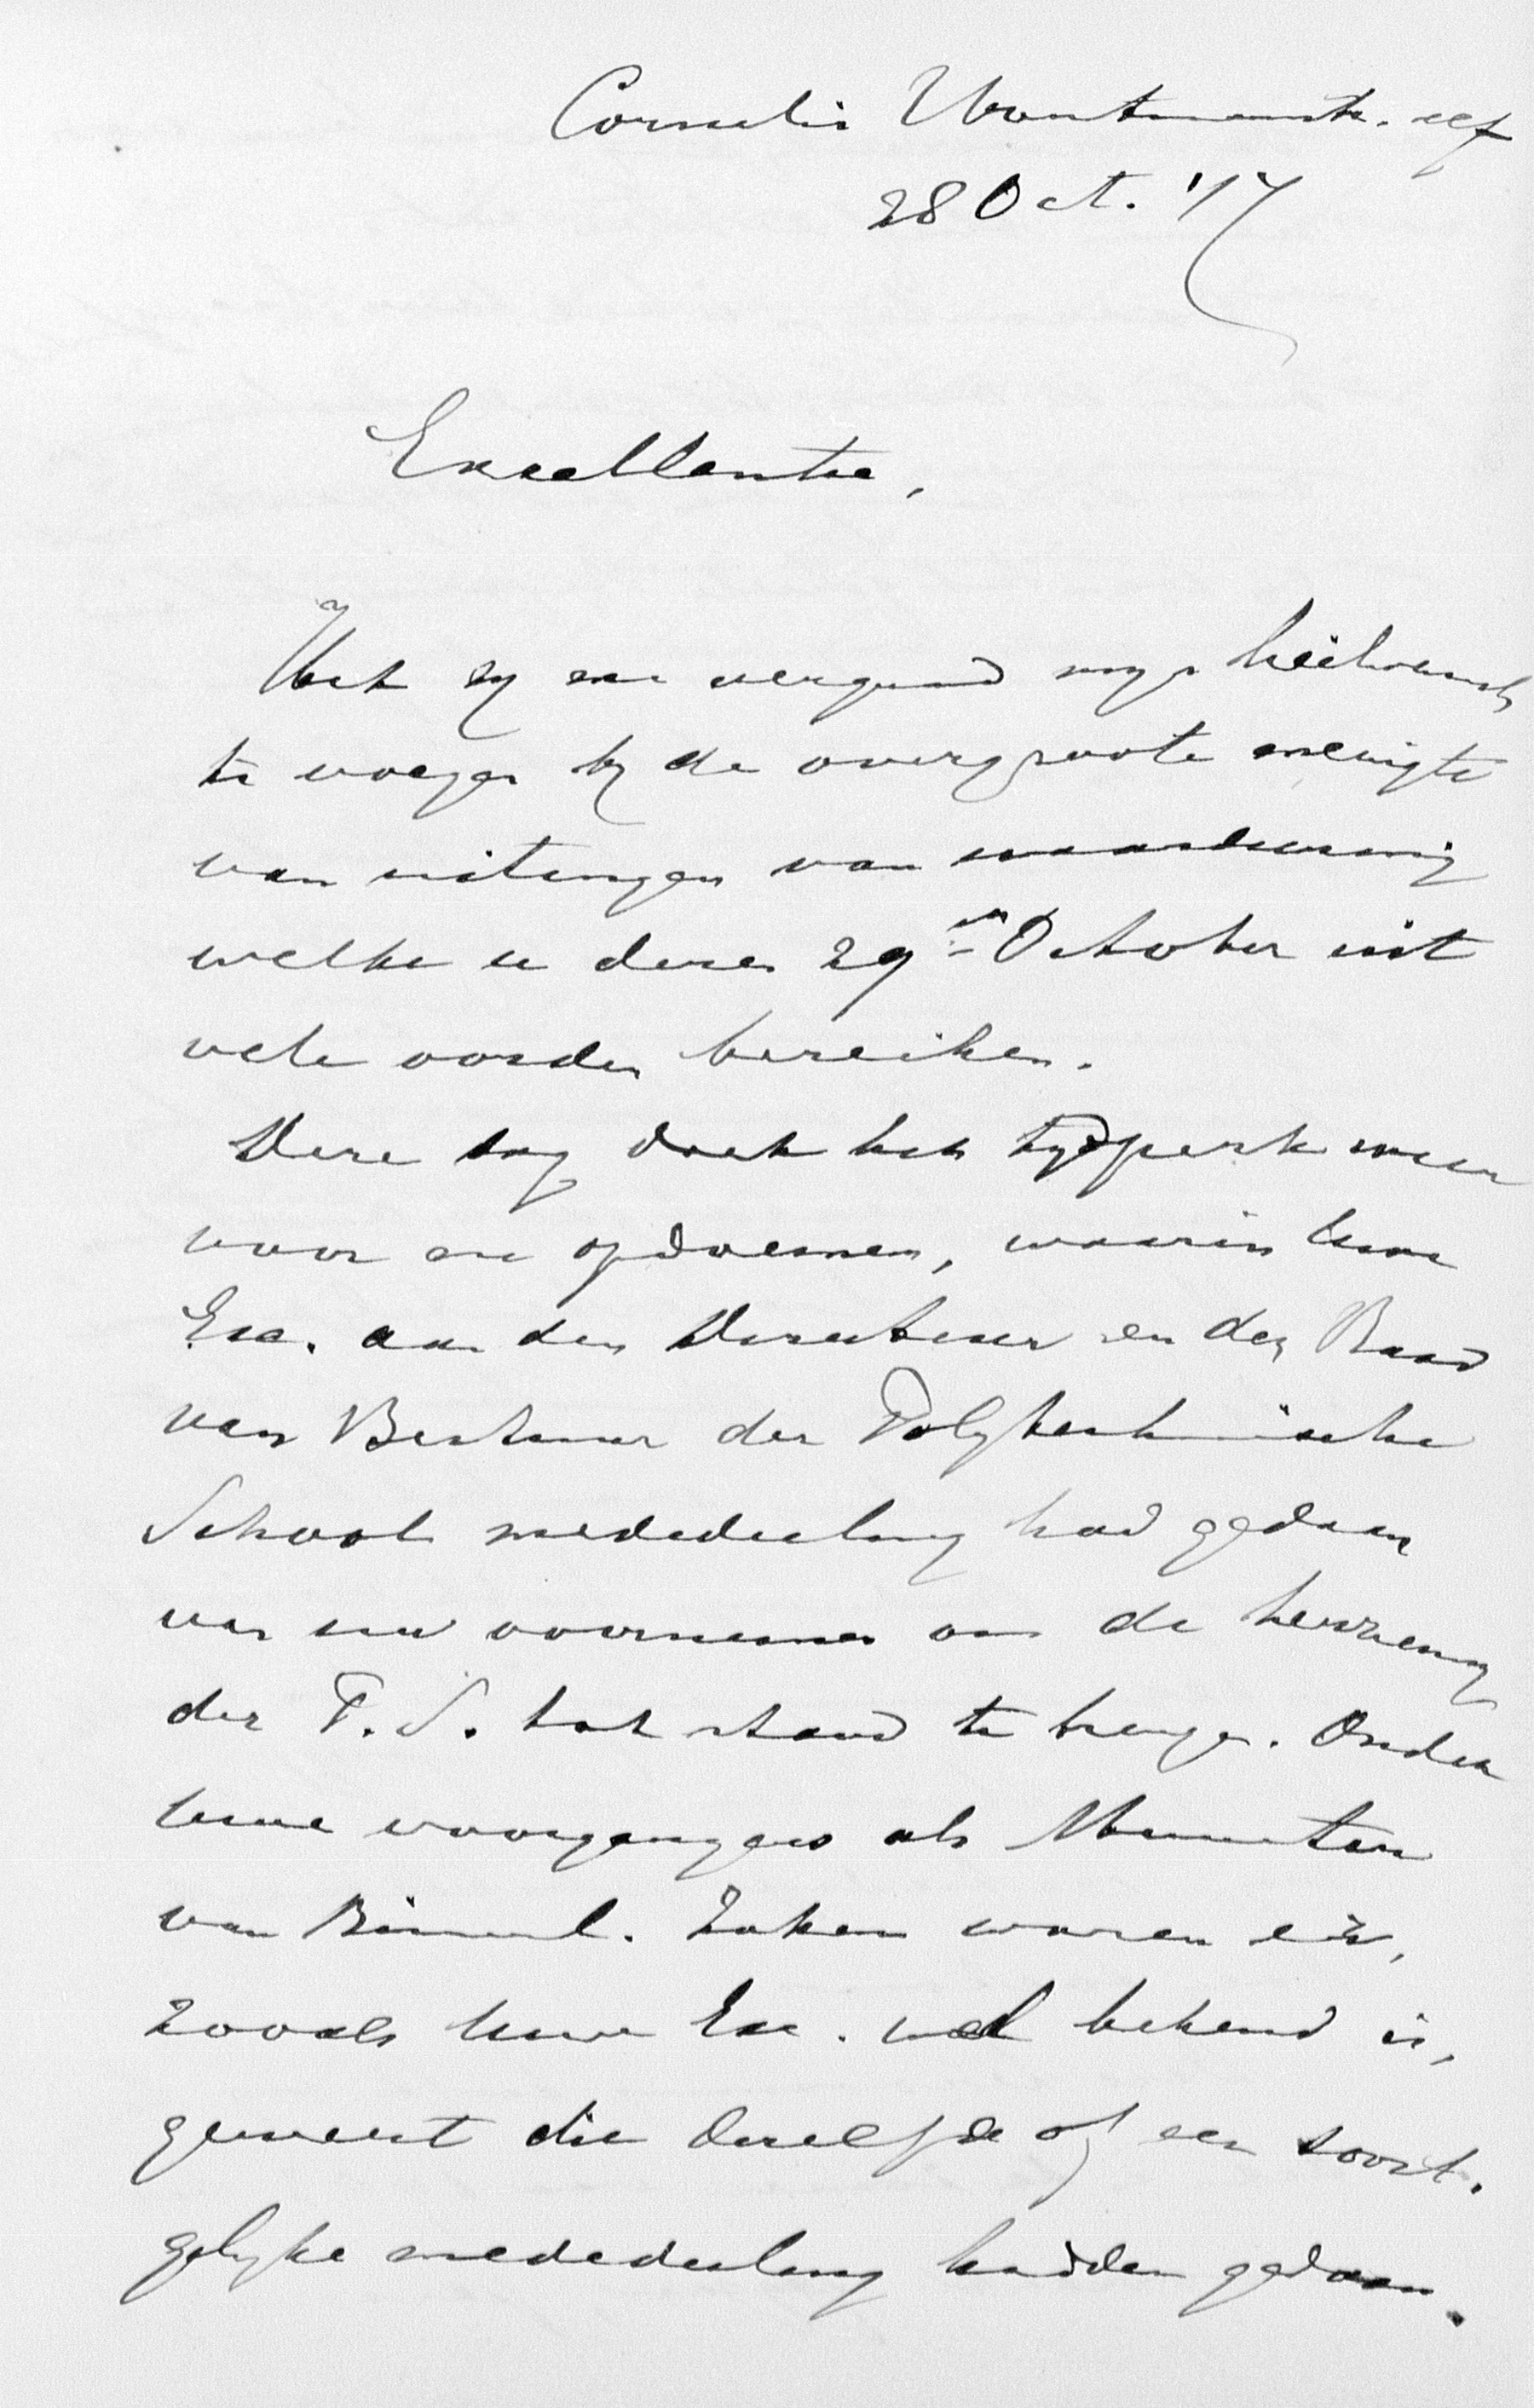 Cornelis Houtmanstr. elf
28 Oct. '17
Excellentie,
Het zij me vergund mijn heilwensch
te voegen bij de overgroote menigte
van uitingen van waardeering
welke u dezen 29en October uit
vele oorden bereiken.
Deze dag doet het tijdperk weer
voor me opdoemen, waarin Uwe
Exc. aan den Directeur en den Raad
van Bestuur der Polytechnische
School mededeeling had gedaan
van uw voornemen om de herziening
der P.S. tot stand te brengen. Onder
Uwe voorgangers als Ministers
van Binnenl. Zaken waren er,
zooals Uwe Exc. wel bekend is,
geweest die dezelfde of een soort-
gelijke mededeeling hadden gedaan.